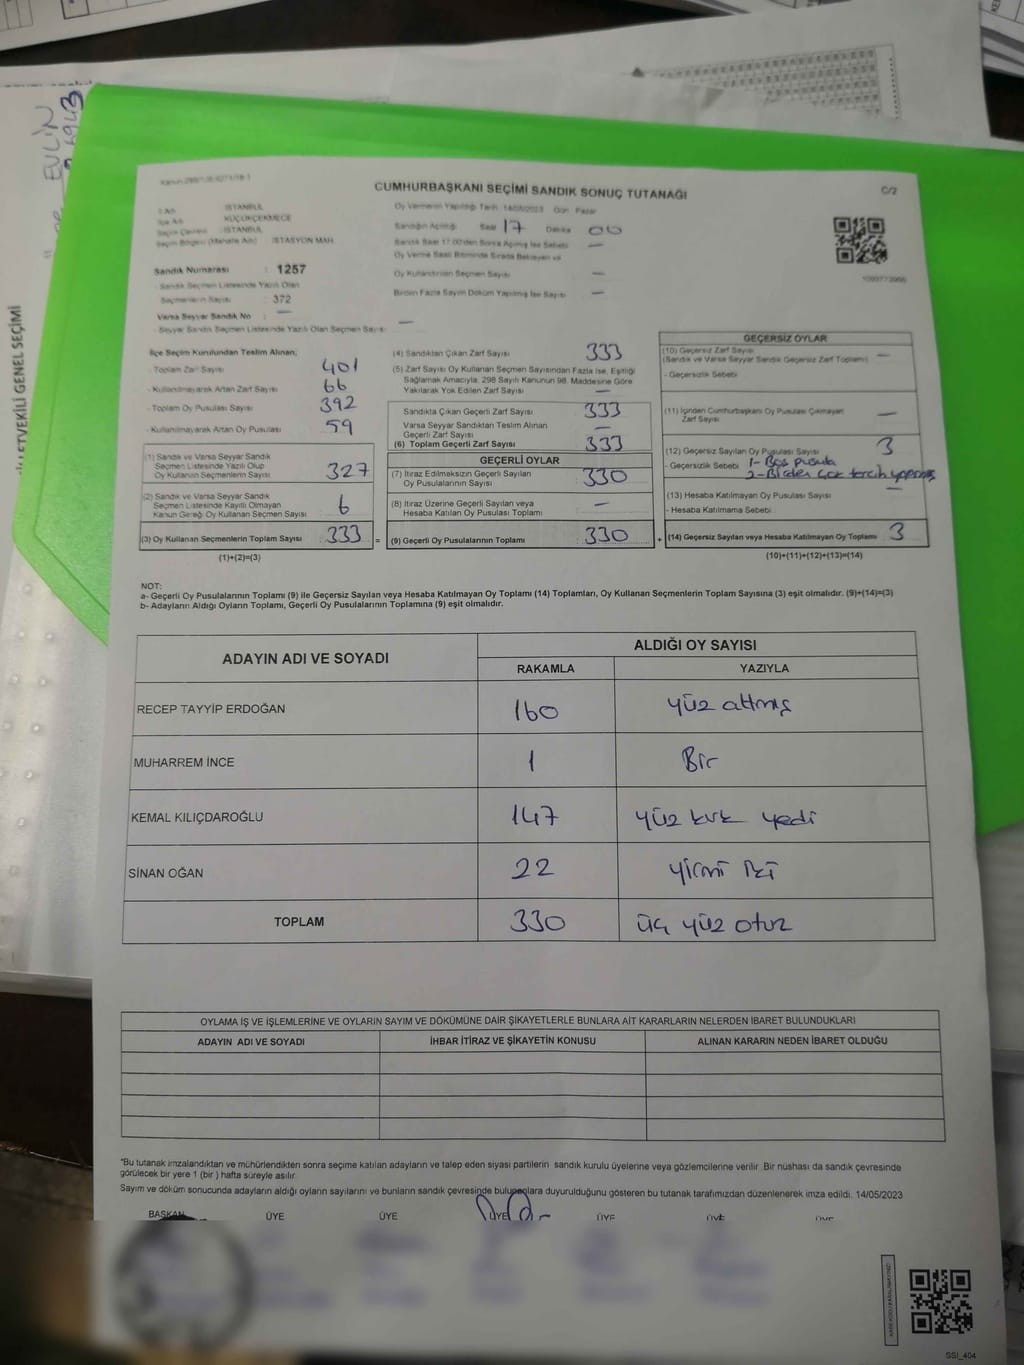 EVLİN
CUMHURBAŞKANI SEÇİMİ SANDIK SONUÇ TUTANAĞI
C/2
İli Adı : İSTANBUL
İlçe Adı : KÜÇÜKÇEKMECE
Seçim Çevresi : İSTANBUL
Seçim Bölgesi (Mahalle Adı) : İSTASYON MAH.
Oy Vermenin Yapıldığı Tarih: 14/05/2023 Gün: Pazar
Sandığın Açıldığı Saat 17 Dakika 00
Sandık Saat 17:00'den Sonra Açılmış İse Sebebi —
Oy Verme Saati Bitiminde Sırada Bekleyen ve
Oy Kullandırılan Seçmen Sayısı —
Birden Fazla Sayım Döküm Yapılmış İse Sayısı —
Sandık Numarası : 1257
- Sandık Seçmen Listesinde Yazılı Olan
Seçmenlerin Sayısı : 372
Varsa Seyyar Sandık No : —
- Seyyar Sandık Seçmen Listesinde Yazılı Olan Seçmen Sayısı —
İlçe Seçim Kurulundan Teslim Alınan;
- Toplam Zarf Sayısı : 401
- Kullanılmayarak Artan Zarf Sayısı : 66
- Toplam Oy Pusulası Sayısı : 392
- Kullanılmayarak Artan Oy Pusulası : 59
(1) Sandık ve Varsa Seyyar Sandık
Seçmen Listesinde Yazılı Olup
Oy Kullanan Seçmenlerin Sayısı : 327
(2) Sandık ve Varsa Seyyar Sandık
Seçmen Listesinde Kayıtlı Olmayan
Kanun Gereği Oy Kullanan Seçmen Sayısı : 6
(3) Oy Kullanan Seçmenlerin Toplam Sayısı : 333 =
(1)+(2)=(3)
(4) Sandıktan Çıkan Zarf Sayısı : 333
(5) Zarf Sayısı Oy Kullanan Seçmen Sayısından Fazla İse, Eşitliği
Sağlamak Amacıyla, 298 Sayılı Kanunun 98. Maddesine Göre
Yakılarak Yok Edilen Zarf Sayısı : —
Sandıkta Çıkan Geçerli Zarf Sayısı : 333
Varsa Seyyar Sandıktan Teslim Alınan
Geçerli Zarf Sayısı : —
(6) Toplam Geçerli Zarf Sayısı : 333
GEÇERLİ OYLAR
(7) İtiraz Edilmeksizin Geçerli Sayılan
Oy Pusulalarının Sayısı : 330
(8) İtiraz Üzerine Geçerli Sayılan veya
Hesaba Katılan Oy Pusulası Toplamı : —
(9) Geçerli Oy Pusulalarının Toplamı : 330 +
GEÇERSİZ OYLAR
(10) Geçersiz Zarf Sayısı —
(Sandık ve Varsa Seyyar Sandık Geçersiz Zarf Toplamı)
- Geçersizlik Sebebi
(11) İçinden Cumhurbaşkanı Oy Pusulası Çıkmayan
Zarf Sayısı —
(12) Geçersiz Sayılan Oy Pusulası Sayısı 3
- Geçersizlik Sebebi 1- Boş pusula
2- Birden çok tercih yapılmış
(13) Hesaba Katılmayan Oy Pusulası Sayısı —
- Hesaba Katılmama Sebebi
(14) Geçersiz Sayılan veya Hesaba Katılmayan Oy Toplamı 3
(10)+(11)+(12)+(13)=(14)
NOT:
a- Geçerli Oy Pusulalarının Toplamı (9) ile Geçersiz Sayılan veya Hesaba Katılmayan Oy Toplamı (14) Toplamları, Oy Kullanan Seçmenlerin Toplam Sayısına (3) eşit olmalıdır. (9)+(14)=(3)
b- Adayların Aldığı Oyların Toplamı, Geçerli Oy Pusulalarının Toplamına (9) eşit olmalıdır.
ADAYIN ADI VE SOYADI
ALDIĞI OY SAYISI
RAKAMLA YAZIYLA
RECEP TAYYİP ERDOĞAN 160 yüz altmış
MUHARREM İNCE 1 Bir
KEMAL KILIÇDAROĞLU 147 yüz kırk yedi
SİNAN OĞAN 22 yirmi iki
TOPLAM 330 üç yüz otuz
OYLAMA İŞ VE İŞLEMLERİNE VE OYLARIN SAYIM VE DÖKÜMÜNE DAİR ŞİKAYETLERLE BUNLARA AİT KARARLARIN NELERDEN İBARET BULUNDUKLARI
ADAYIN ADI VE SOYADI İHBAR İTİRAZ VE ŞİKAYETİN KONUSU ALINAN KARARIN NEDEN İBARET OLDUĞU
*Bu tutanak imzalandıktan ve mühürlendikten sonra seçime katılan adayların ve talep eden siyasi partilerin sandık kurulu üyelerine veya gözlemcilerine verilir. Bir nüshası da sandık çevresinde
görülecek bir yere 1 (bir) hafta süreyle asılır.
Sayım ve döküm sonucunda adayların aldığı oyların sayılarını ve bunların sandık çevresinde bulunanlara duyurulduğunu gösteren bu tutanak tarafımızdan düzenlenerek imza edildi. 14/05/2023
BAŞKAN ÜYE ÜYE ÜYE ÜYE ÜYE ÜYE
SSI_404